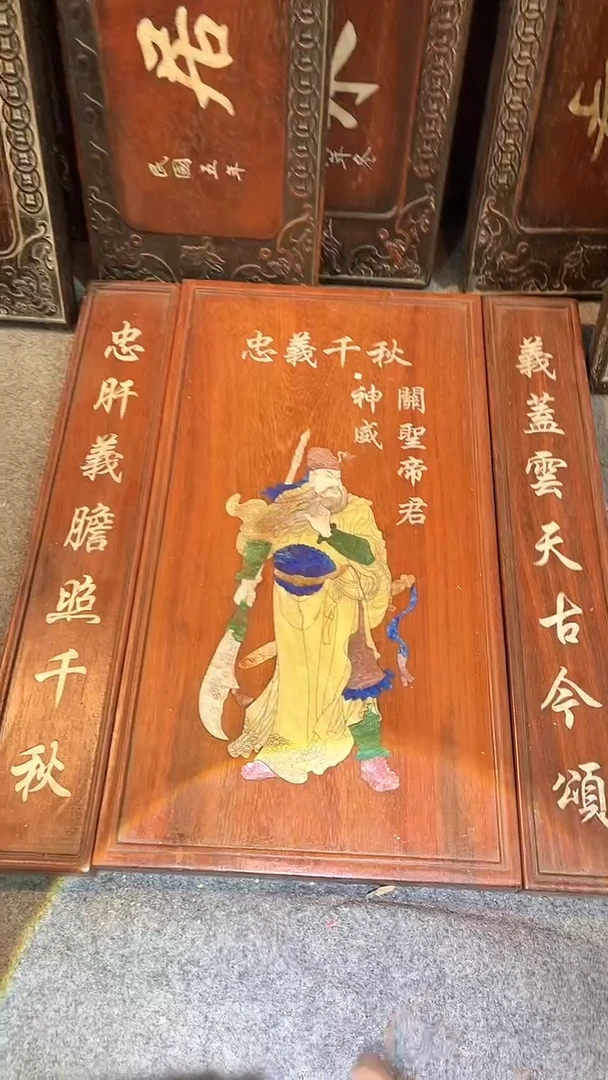 居
民國五年
忠義千秋
關聖帝君
神威
義蓋雲天古今頌
忠肝義膽照千秋